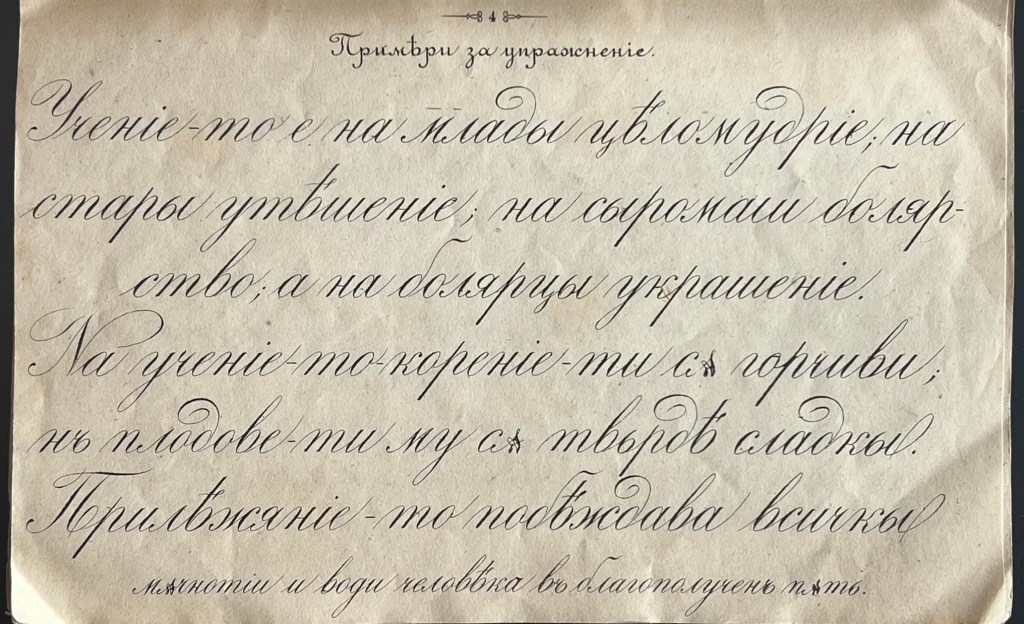 4
Примѣри за упражненіе.
Ученіе-то е на млады цѣломудріе; на
стары утѣшеніе; на сыромаши боляр-
ство; а на болярцы украшеніе.
На ученіе-то-кореніе-ти сѫ горчиви;
нъ плодове-ти му сѫ твьрдѣ сладкы.
Прилѣжяніе-то побѣждава всичкы
мѫчнотіи и води человѣка въ благополученъ пѫть.